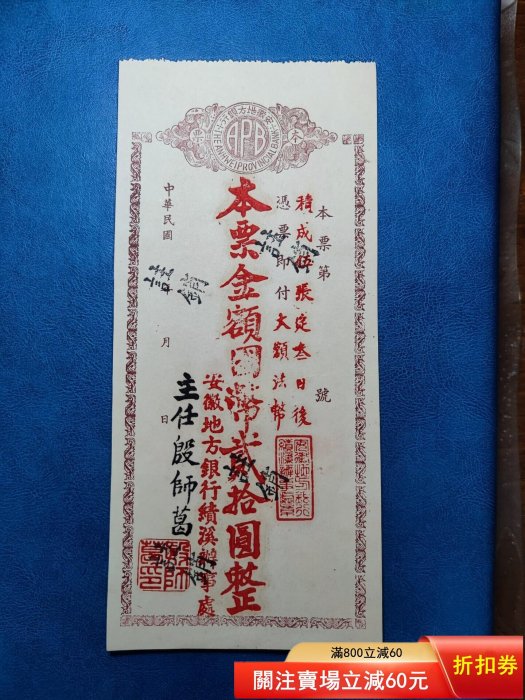 安徽地方銀行
本票
APB
THE ANHWEI PROVINCIAL BANK
本票第 號
積成伍張定叁日後
憑票即付大額法幣
本票金額國幣貳拾圓整
安徽地方銀行績溪辦事處
主任殷師葛
中華民國 月 日
註銷
註銷
註銷
滿800立減60
關注賣場立減60元
折扣券